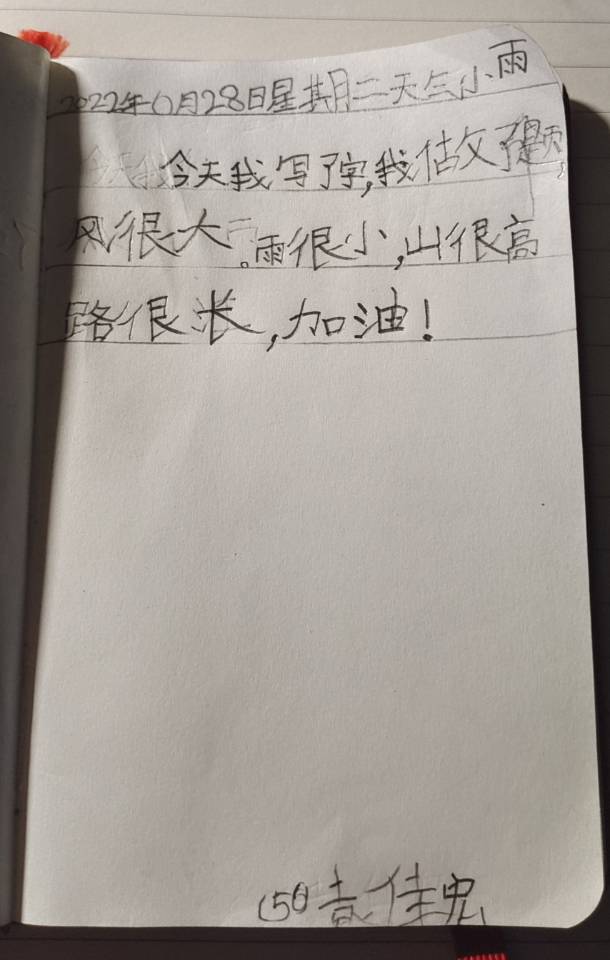 2022年6月28日星期二天气小雨
今天我今天我写了字,我做了题,
风很大。雨很小,山很高
路很长,加油!
(50袁佳宽